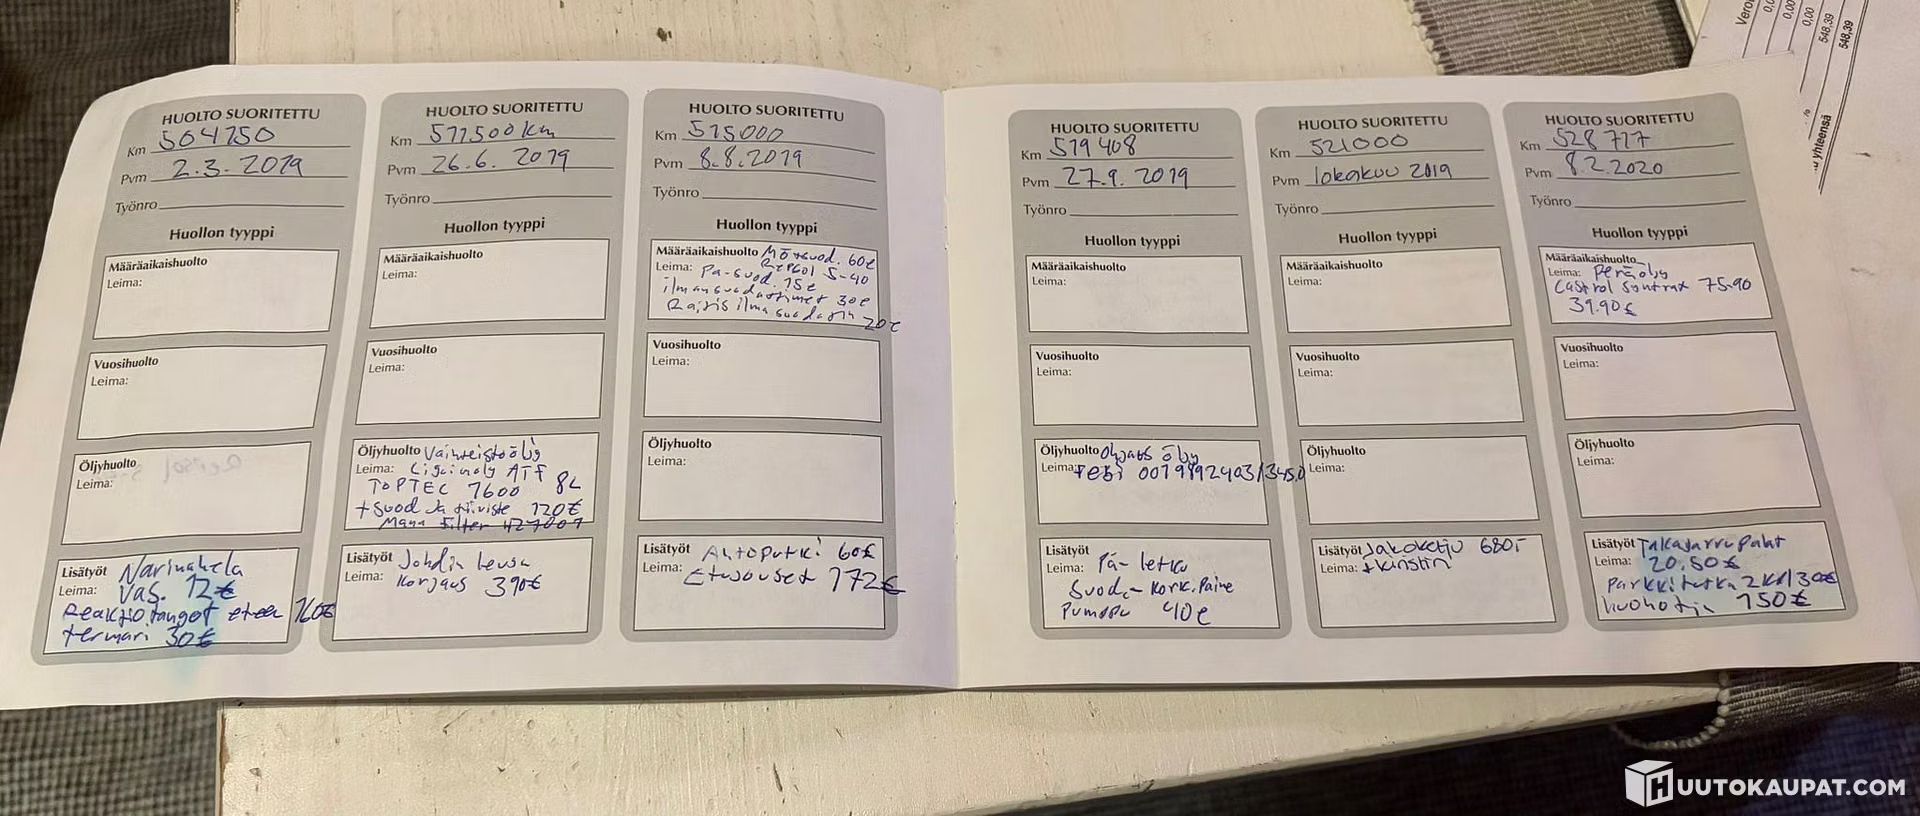 HUOLTO SUORITETTU
Km 504150
Pvm 2.3.2019
Työnro
Huollon tyyppi
Määräaikaishuolto
Leima:
Vuosihuolto
Leima:
Öljyhuolto
Leima:
Lisätyöt Narinahela
Leima: Vas. 12€
Reaktiotangot eteen 160€
termari 30€
HUOLTO SUORITETTU
Km 511500 km
Pvm 26.6.2019
Työnro
Huollon tyyppi
Määräaikaishuolto
Leima:
Vuosihuolto
Leima:
Öljyhuolto Vaihteistoöljy
Leima: Liquimoly ATF
TOPTEC 1600 8L
+ suod ja tiiviste 120€
Lisätyöt Johdin
Leima: Korjaus 390€
HUOLTO SUORITETTU
Km 515000
Pvm 8.8.2019
Työnro
Huollon tyyppi
Määräaikaishuolto
Leima: Pa-suod. 15€ 5-40
ilmansuodattimet 30€
Raitis ilmasuodatin 20€
Vuosihuolto
Leima:
Öljyhuolto
Leima:
Lisätyöt 60€
Leima: Etujouset 172€
HUOLTO SUORITETTU
Km 519408
Pvm 27.9.2019
Työnro
Huollon tyyppi
Määräaikaishuolto
Leima:
Vuosihuolto
Leima:
Öljyhuolto Ohjaus öljy
Leima:
Lisätyöt Pa-letku
Leima: Suoda-kork.Paine
Pumppu 40€
HUOLTO SUORITETTU
Km 521000
Pvm lokakuu 2019
Työnro
Huollon tyyppi
Määräaikaishuolto
Leima:
Vuosihuolto
Leima:
Öljyhuolto
Leima:
Lisätyöt Jakoketju 680,-
Leima: + kiristin
HUOLTO SUORITETTU
Km 528717
Pvm 8.2.2020
Työnro
Huollon tyyppi
Määräaikaishuolto
Leima: Peräöljy
Castrol Syntrax 75-90
39.90€
Vuosihuolto
Leima:
Öljyhuolto
Leima:
Lisätyöt Takajarrupalat
Leima: 20.50€
Parkkitutka 2kpl 30€
150€
0,00
0,00
548,39
548,39
yhteensä
HUUTOKAUPAT.COM